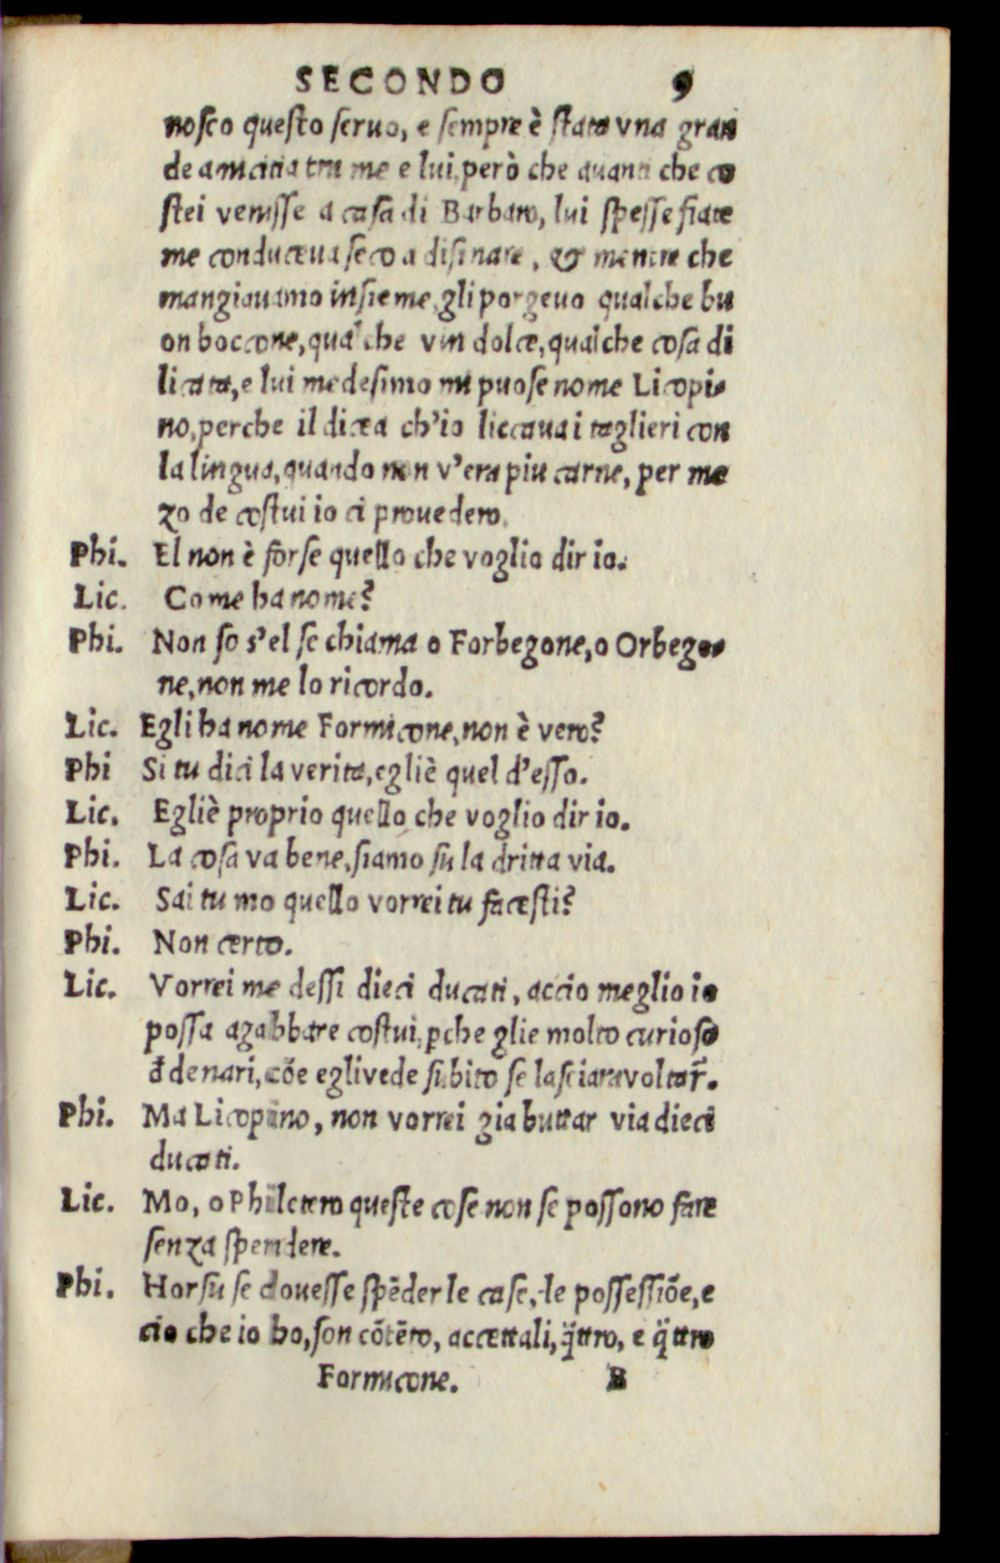 SECONDO 9
noſco queſto ſeruo, e ſempre è ſtata vna gran
de amicitia tra me e lui, però che auanti che co
ſtei veniſſe a caſa di Barbaro, lui ſpeſſe fiate
me conduceua ſeco a diſinare, & mentre che
mangiauamo inſieme, gli porgeuo qualche bu
on boccone, qualche vin dolce, qualche coſa di
licata, e lui medeſimo mi puoſe nome Licopi-
no, perche il dicea ch'io liccaua i taglieri con
la lingua, quando non v'era piu carne, per me
zo de coſtui io ci prouedero.
Phi. El non è forſe quello che voglio dir io.
Lic. Come ha nome?
Phi. Non ſo s'el ſe chiama o Forbegone, o Orbego-
ne, non me lo ricordo.
Lic. Egli ha nome Formicone, non è vero?
Phi Si tu dici la verita, egliè quel d'eſſo.
Lic. Egliè proprio quello che voglio dir io.
Phi. La coſa va bene, ſiamo ſu la dritta via.
Lic. Sai tu mo quello vorrei tu faceſti?
Phi. Non certo.
Lic. Vorrei me deſſi dieci ducati, accio meglio io
poſſa agabbare coſtui, ꝑche glie molto curioſo
đ denari, cõe egli vede ſubito ſe laſciara voltar̃.
Phi. Ma Licopino, non vorrei gia buttar via dieci
ducati.
Lic. Mo, o Philetero queſte coſe non ſe poſſono fare
ſenza ſpendere.
Phi. Horſu ſe doueſſe ſpẽder le caſe, le poſſeſſiõe, e
cio che io ho, ſon cõtẽto, accettali, q̈ttro, e q̈ttro
Formicone. B